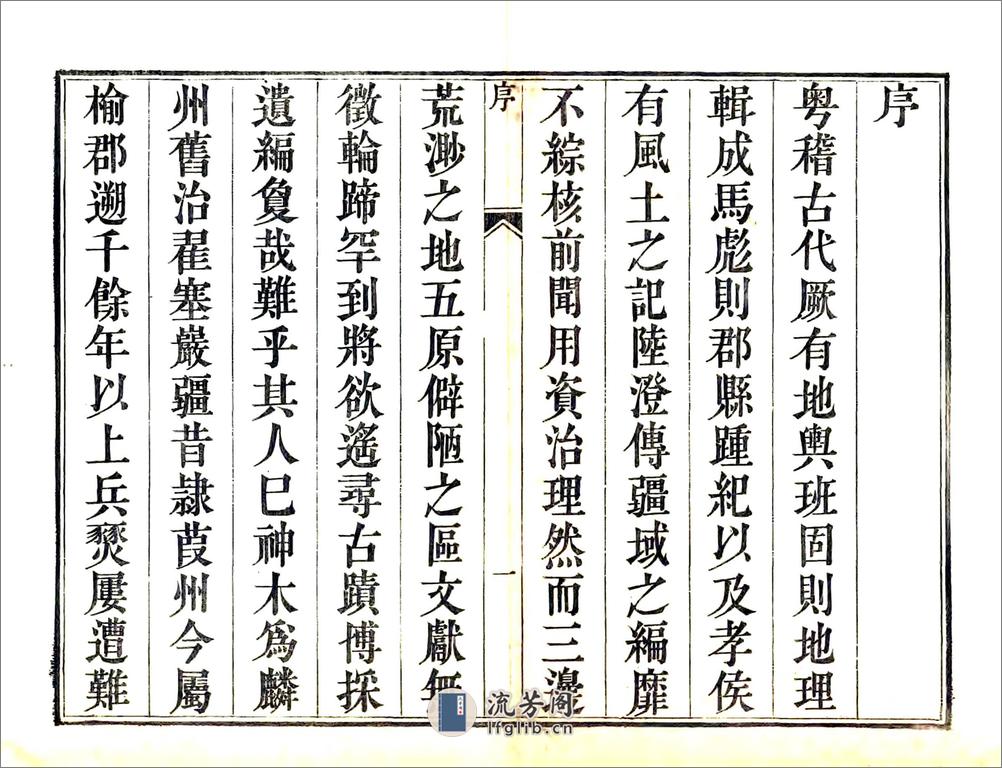 序
粤稽古代厥有地輿班固則地理
輯成馬彪則郡縣踵紀以及孝侯
有風土之記陸澄傳疆域之編靡
不綜核前聞用資治理然而三邊
序
一
荒渺之地五原僻陋之區文獻無
徵輪蹄罕到將欲遙尋古蹟博採
遺編敻哉難乎其人已神木爲麟
州舊治翟塞巖疆昔隷葭州今屬
榆郡遡千餘年以上兵燹屢遭難
流芳阁
lfglib.cn